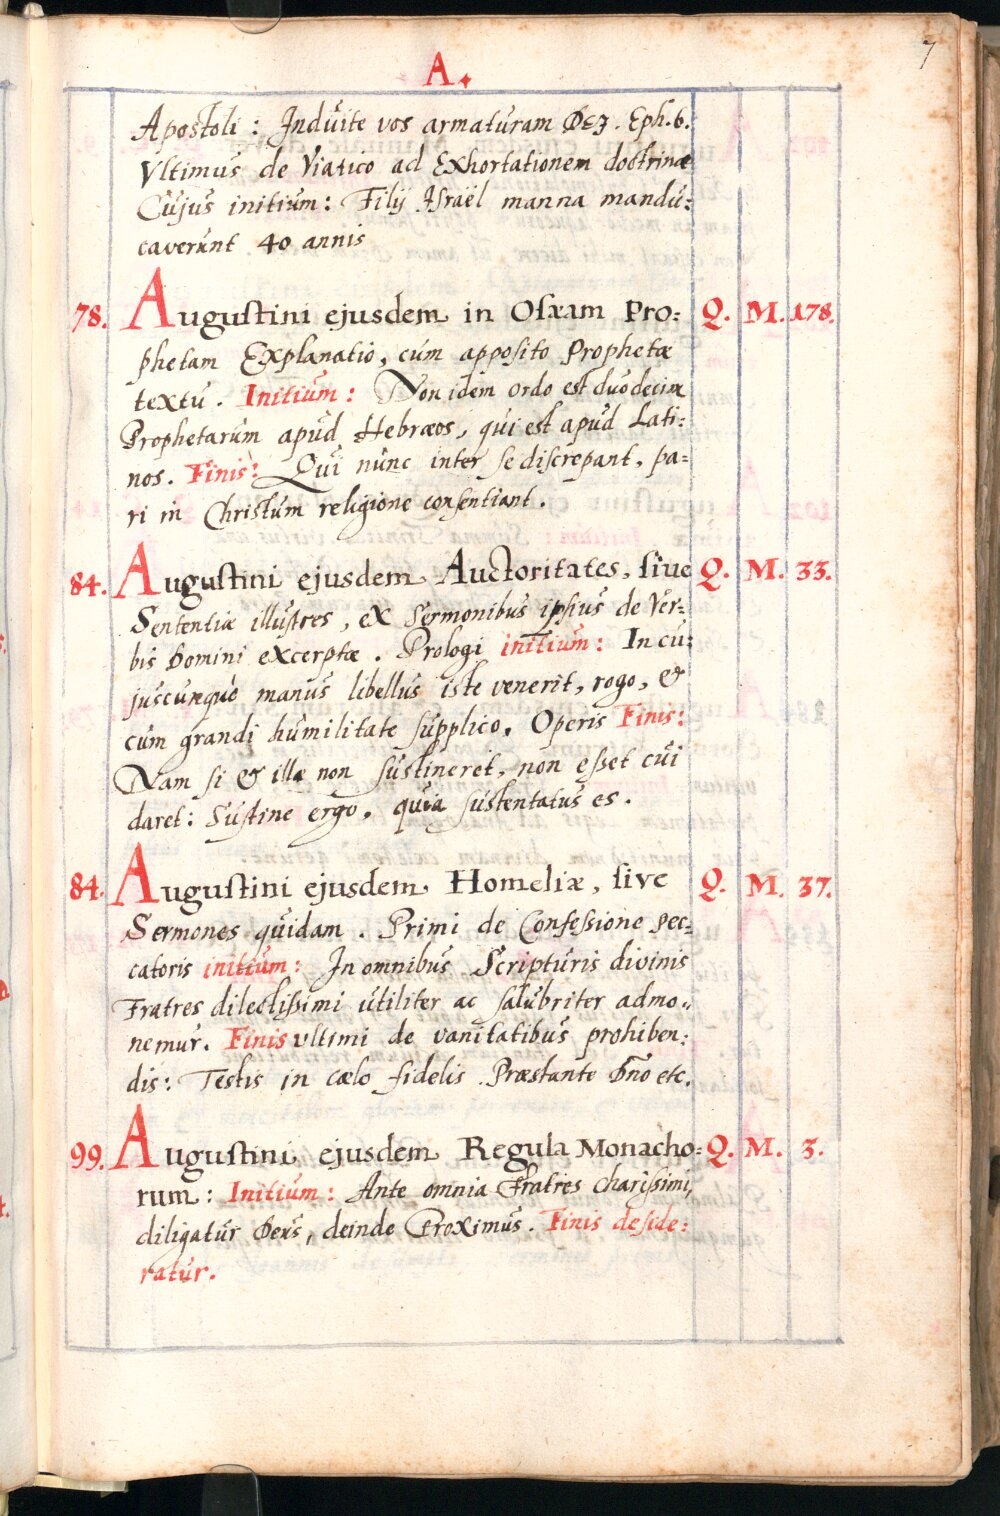 7
A.
Apostoli : Induite vos armaturam DEJ. Eph. 6.
Vltimus de Viatico ad Exhortationem doctrinæ
Cujus initium : Filij Israël manna mandu:
caverunt 40 annis
78. Augustini ejusdem in Oseam Pro: Q. M. 178.
phetam Explanatio, cum apposito Prophetæ
textu. Initium : Non idem ordo est duodecim
Prophetarum apud Hebræos, qui est apud Lati:
nos. Finis: Qui nunc inter se discrepant, pa=
ri in Christum religione consentiant.
84. Augustini ejusdem Auctoritates, sive Q. M. 33.
Sententiæ illustres, ex Sermonibus ipsius de Ver:
bis Domini excerptæ. Prologi initium : In cu:
juscunque manus libellus iste venerit, rogo, &
cum grandi humilitate supplico. Operis Finis:
Nam si & illa non sustineret, non esset cui
daret : Sustine ergo, quia sustentatus es.
84. Augustini ejusdem Homeliæ, sive Q. M. 37.
Sermones quidam. Primi de Confessione pec:
catoris initium : In omnibus Scripturis divinis
Fratres dilectissimi utiliter ac salubriter admo:
nemur. Finis ultimi de vanitatibus prohiben:
dis : Testis in cælo fidelis. Præstante Dño etc.
99. Augustini ejusdem Regula Monacho: Q. M. 3.
rum : Initium : Ante omnia Fratres charissimi,
diligatur Deus, deinde Proximus. Finis deside:
ratur.